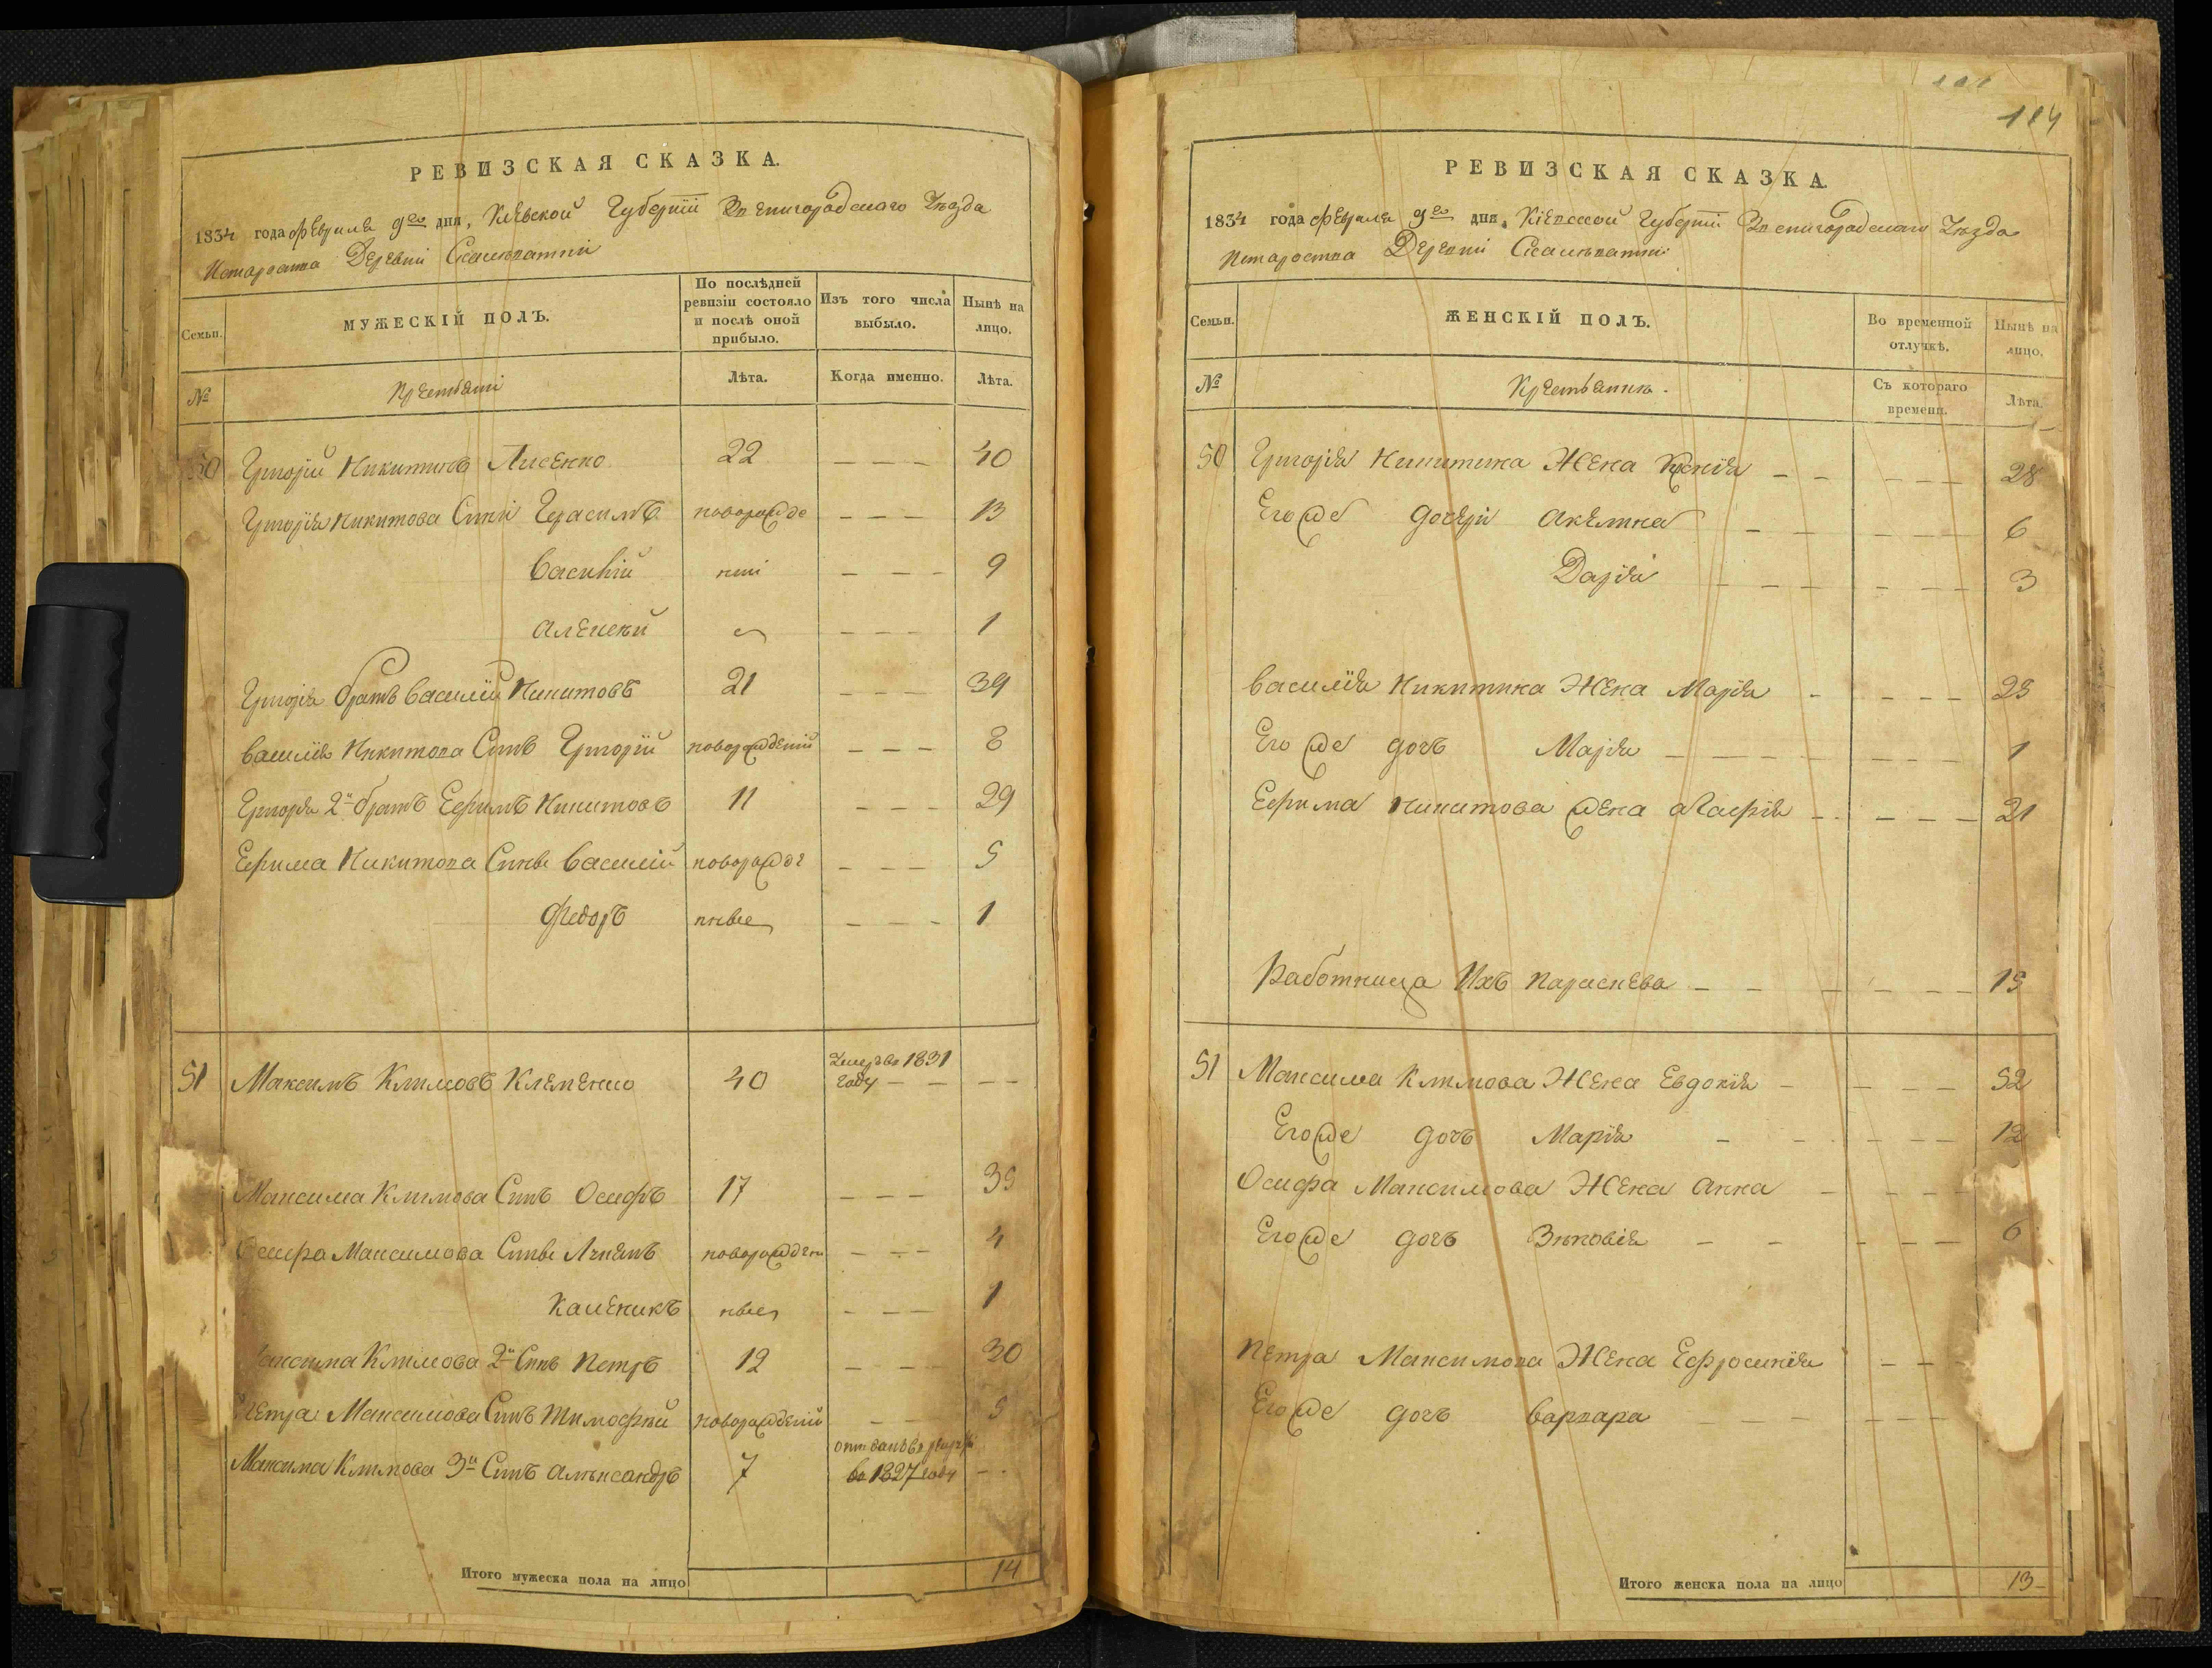 РЕВИЗСКАЯ СКАЗКА.
1834 года Февраля 9го дня, Кіевской Губерніи Звенигородскаго Уѣзда
Деревни
Семьи. МУЖЕСКІЙ ПОЛЪ. По послѣдней ревизіи состояло и послѣ оной прибыло. Изъ того числа выбыло. Нынѣ на лицо.
№ Крестьяни Лѣта. Когда именно. Лѣта.
50 Григорій Никитовъ Лисенко 22 – – – 40
Григорія Никитова Сини Герасимъ новорожде – – – 13
Василій ниі – – – 9
Алексѣй – – – 1
Григорія братъ Василій Никитовъ 21 – – – 39
Василія Никитова Синъ Григорій новорожденій – – – 8
Григорія 2й братъ Ефимъ Никитовъ 11 – – – 29
Ефима Никитова Сини Василій новорожде – – – 5
Федоръ нные – – – 1
51 Максимъ Климовъ Клеменко 40 Умеръ въ 1831 году – – – –
Максима Климова Синъ Осифъ 17 – – – 35
Осифа Максимова Сины новорожден – – – 4
Каленикъ ные – – – 1
Максима Климова 2й Синъ Петръ 12 – – 30
Петра Максимова Синъ Тимофѣй новорожденій – – 5
Максима Климова 3й Синъ Алѣксандръ 7 отданъ в рекруты во 1827 году –
Итого мужеска пола на лицо 14
114
РЕВИЗСКАЯ СКАЗКА.
1834 года Февраля 9го дня, Кіевской Губерніи Звенигородскаго Уѣзда
Деревни
Семьи. ЖЕНСКІЙ ПОЛЪ. Во временной отлучкѣ. Нынѣ на лицо.
№ Крестьянки. Съ котораго времени. Лѣта.
50 Григорія Никитина Жена Ксенія – – – – – 28
Егоже дочери Акилина – – – – – 6
Дарія – – – – – – 3
Василія Никитина Жена Марія – – – – 25
Его же дочь Марія – – – – – – – 1
Ефима Никитова жена Агафія – – – – 21
Работница Ихъ Параскева – – – – – – 15
51 Максима Климова Жена Евдокія – – – – 52
Егоже дочь Марія – – – – – 12
Осифа Максимова Жена Анна – – –
Егоже дочь Зѣновія – – – – – 6
Петра Максимова Жена Ефросинія – –
Егоже дочь Варвара – – – – – –
Итого женска пола на лицо 13